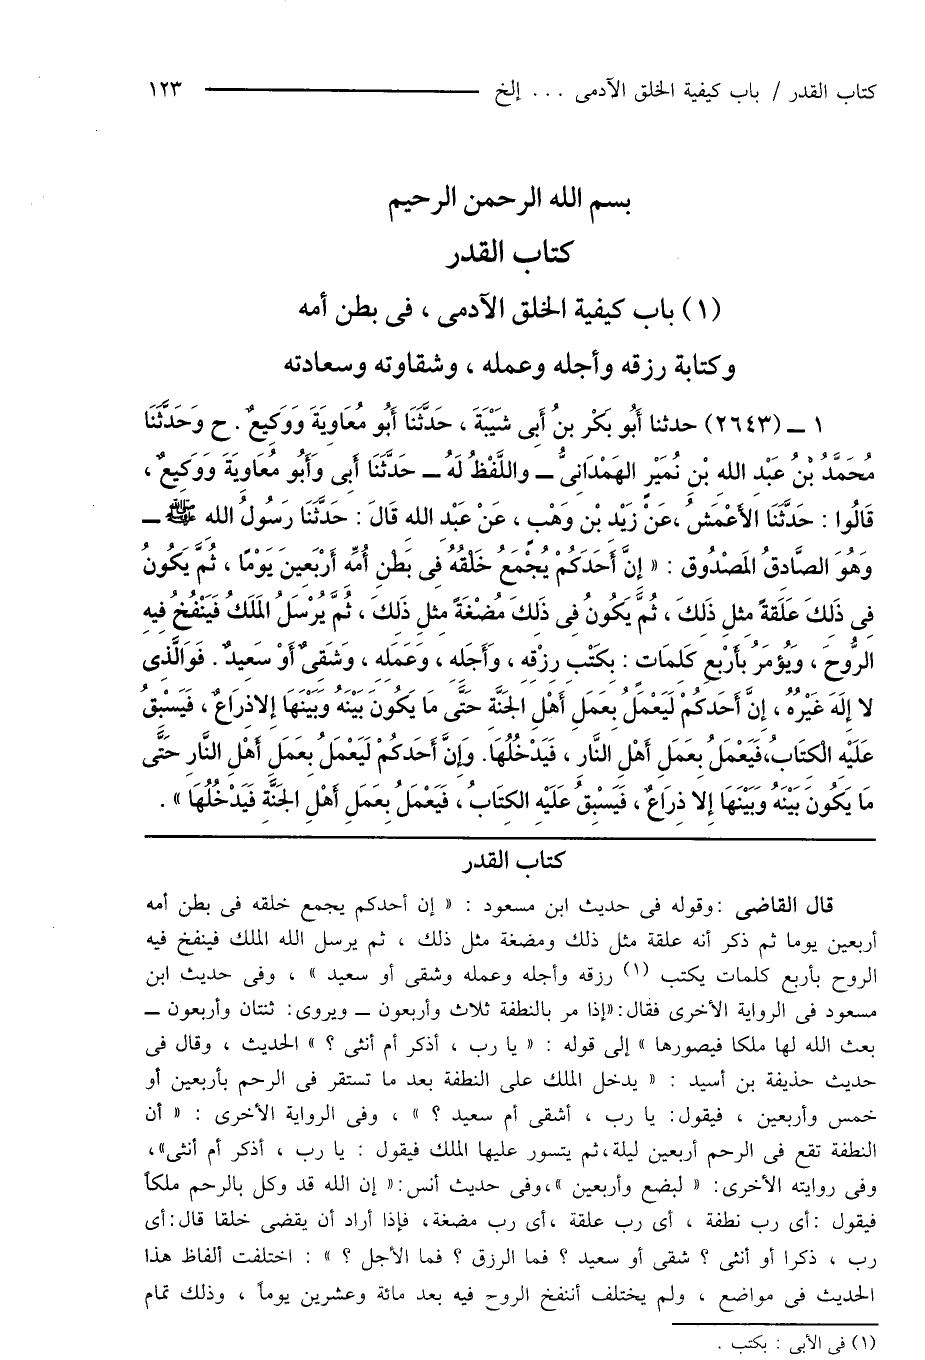 كتاب القدر / باب كيفية الخلق الآدمى ... إلخ ١٢٣
بسم الله الرحمن الرحيم
كتاب القدر
(١) باب كيفية الخلق الآدمى ، فى بطن أمه
وكتابة رزقه وأجله وعمله ، وشقاوته وسعادته
١ ــ (٢٦٤٣) حدثنا أَبُو بَكْرِ بنُ أَبِى شَيْبَةَ ، حَدَّثَنَا أَبُو مُعَاوِيَةَ وَوَكِيعٌ . ح وَحَدَّثَنَا
مُحَمَّدُ بْنُ عَبْدِ اللهِ بْنِ نُمَيْرٍ الهَمْدَانِىُّ ــ واللَّفْظُ لَهُ ــ حَدَّثَنَا أَبِى وَأَبُو مُعَاوِيَةَ وَوَكِيعٌ ،
قَالُوا : حَدَّثَنَا الأَعْمَشُ ،عَنْ زَيْدِ بْنِ وَهْبٍ ، عَنْ عَبْدِ اللهِ قَالَ : حَدَّثَنَا رَسُولُ اللهِ ﷺ ــ
وَهُوَ الصَّادِقُ المَصْدُوقُ : « إِنَّ أَحَدَكُمْ يُجْمَعُ خَلْقُهُ فِى بَطْنِ أُمِّهِ أَرْبَعِينَ يَوْمًا ، ثُمَّ يَكُونُ
فِى ذَلِكَ عَلَقَةً مِثْلَ ذَلِكَ ، ثُمَّ يَكُونُ فِى ذَلِكَ مُضْغَةً مِثْلَ ذَلِكَ ، ثُمَّ يُرْسَلُ المَلَكُ فَيَنْفُخُ فِيهِ
الرُّوحَ ، وَيُؤْمَرُ بِأَرْبَعِ كَلِمَاتٍ : بِكَتْبِ رِزْقِهِ ، وَأَجَلِهِ ، وَعَمَلِهِ ، وَشَقِىٌّ أَوْ سَعِيدٌ . فَوَالَّذِى
لا إِلَهَ غَيْرُهُ ، إِنَّ أَحَدَكُمْ لَيَعْمَلُ بِعَمَلِ أَهْلِ الجَنَّةِ حَتَّى مَا يَكُونَ بَيْنَهُ وَبَيْنَهَا إِلا ذِرَاعٌ ، فَيَسْبِقُ
عَلَيْهِ الْكِتَابُ،فَيَعْمَلُ بِعَمَلِ أَهْلِ النَّارِ ، فَيَدْخُلُهَا. وَإِنَّ أَحَدَكُمْ لَيَعْمَلُ بِعَمَلِ أَهْلِ النَّارِ حَتَّى
مَا يَكُونَ بَيْنَهُ وَبَيْنَهَا إِلا ذِرَاعٌ ، فَيَسْبِقُ عَلَيْهِ الكِتَابُ ، فَيَعْمَلُ بِعَمَلِ أَهْلِ الجَنَّةِ فَيَدْخُلُهَا » .
كتاب القدر
قال القاضى :وقوله فى حديث ابن مسعود : « إن أحدكم يجمع خلقه فى بطن أمه
أربعين يوما ثم ذكر أنه علقة مثل ذلك ومضغة مثل ذلك ، ثم يرسل الله الملك فينفخ فيه
الروح بأربع كلمات يكتب (١) رزقه وأجله وعمله وشقى أو سعيد » ، وفى حديث ابن
مسعود فى الرواية الأخرى فقال:«إذا مر بالنطفة ثلاث وأربعون ــ ويروى: ثنتان وأربعون ــ
بعث الله لها ملكا فيصورها » إلى قوله : « يا رب ، أذكر أم أنثى ؟ » الحديث ، وقال فى
حديث حذيفة بن أسيد : « يدخل الملك على النطفة بعد ما تستقر فى الرحم بأربعين أو
خمس وأربعين ، فيقول: يا رب ، أشقى أم سعيد ؟ » ، وفى الرواية الأخرى : « أن
النطفة تقع فى الرحم أربعين ليلة،ثم يتسور عليها الملك فيقول : يا رب ، أذكر أم أنثى»،
وفى روايته الأخرى: « لبضع وأربعين »،وفى حديث أنس:« إن الله قد وكل بالرحم ملكاً
فيقول :أى رب نطفة ، أى رب علقة ،أى رب مضغة، فإذا أراد أن يقضى خلقا قال:أى
رب ، ذكرا أو أنثى ؟ شقى أو سعيد ؟ فما الرزق ؟ فما الأجل ؟ » : اختلفت ألفاظ هذا
الحديث فى مواضع ، ولم يختلف أننفخ الروح فيه بعد مائة وعشرين يوماً ، وذلك تمام
(١) فى الأبى : بكتب .